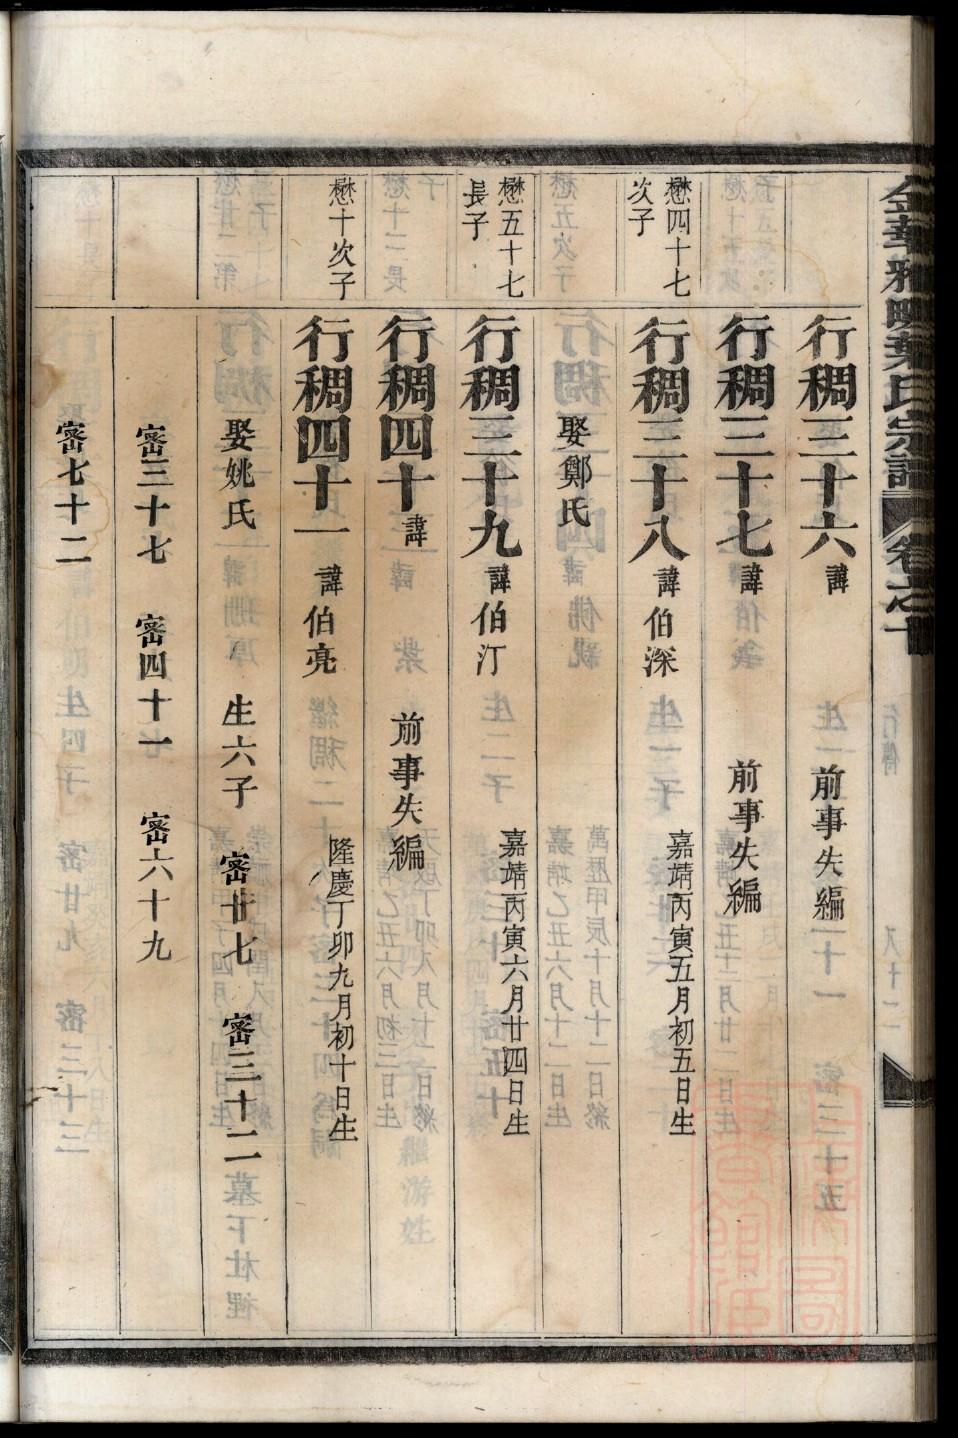 葉氏宗譜 卷之十
行稠三十六 諱 前事失編
行稠三十七 諱 前事失編
懋四十七次子
行稠三十八 諱伯深 嘉靖丙寅五月初五日生
娶鄭氏
懋五十七長子
行稠三十九 諱伯汀 嘉靖丙寅六月廿四日生
行稠四十 諱 前事失編
懋十次子
行稠四十一 諱伯亮 隆慶丁卯九月初十日生
娶姚氏 生六子 密廿七 密三十二
密三十七 密四十一 密六十九
密七十二